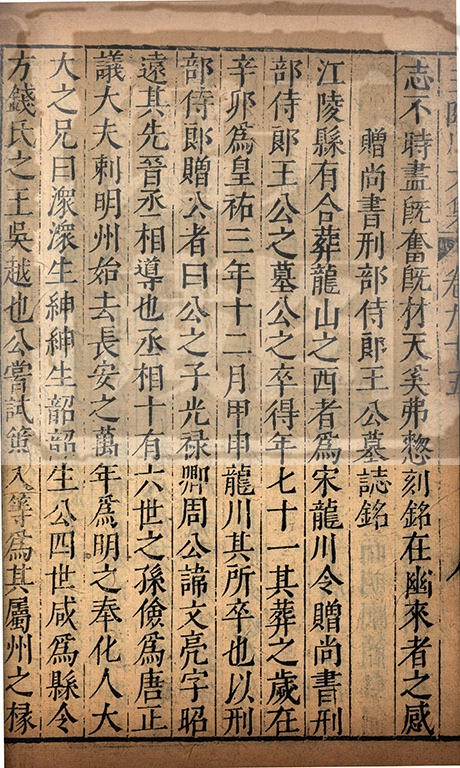 卷九十五
志不時盡旣奮旣材天奚弗憗刻銘在幽來者之感
贈尚書刑部侍郎王公墓誌銘
江陵縣有合葬龍山之西者爲宋龍川令贈尚書刑
部侍郎王公之墓公之卒得年七十一其葬之歲在
辛卯爲皇祐三年十二月甲申龍川其所卒也以刑
部侍郎贈公者曰公之子光禄卿周公諱文亮字昭
遠其先晉丞相導也丞相十有六世之孫儉爲唐正
議大夫刺明州始去長安之萬年爲明之奉化人大
大之兄曰潨潨生紳紳生韶韶生公四世咸爲縣令
方錢氏之王吳越也公嘗試入等爲其屬州之掾